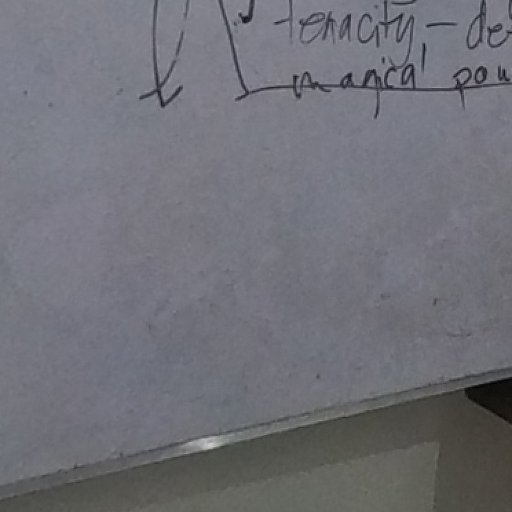 tenacity – de
magical pow